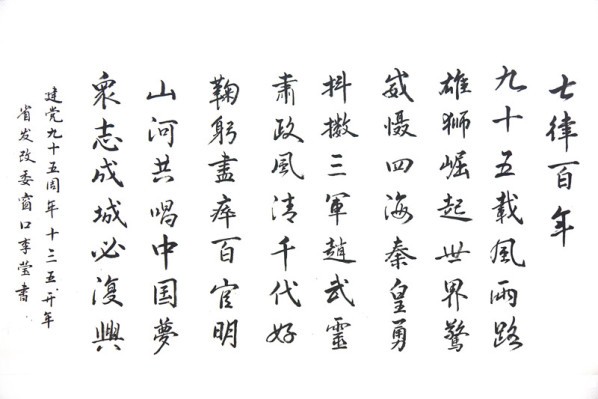 七律百年
九十五載風雨路
雄狮崛起世界驚
威慑四海秦皇勇
抖擞三軍趙武靈
肅政風清千代好
鞠躬盡瘁百官明
山河共唱中国夢
衆志成城必復興
建党九十五周年十三五开年
省发改委窗口李莹書